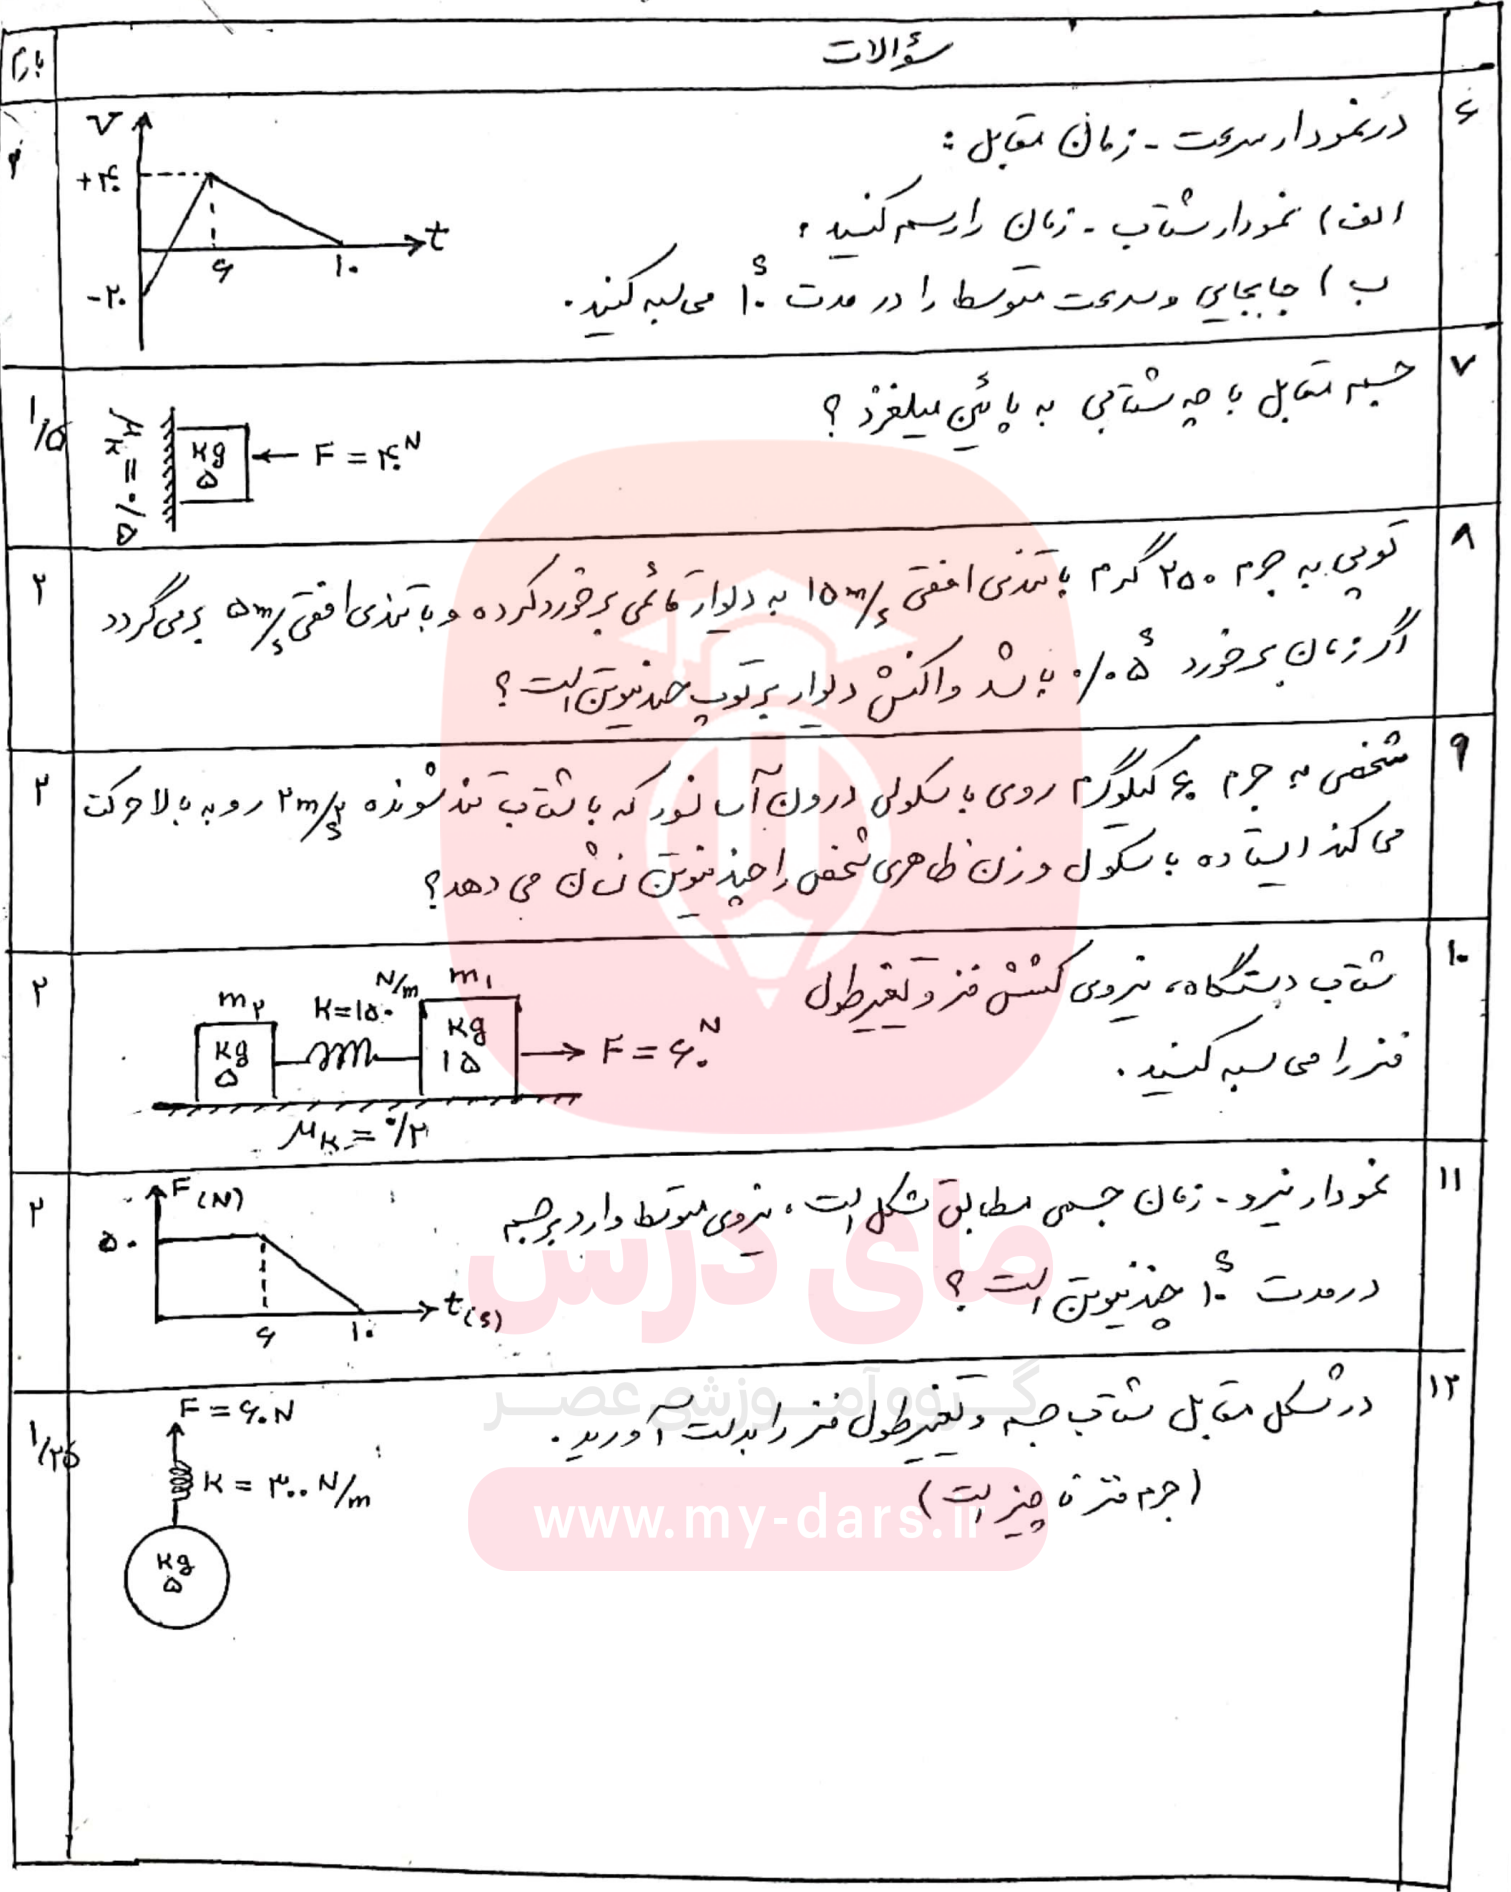 بارم
سؤالات
۶
در نمودار سرعت - زمان مقابل :
الف) نمودار شتاب - زمان را رسم کنید.
ب) جابجایی و سرعت متوسط را در مدت ۱۰s محاسبه کنید.
V
+۴۰
-۲۰
۶
۱۰
t
۷
جسم مقابل با چه شتابی به پائین میلغزد ؟
۱/۵
μk = ۰/۵
kg
۵
F = ۴۰N
۸
توپی به جرم ۲۵۰ گرم با تندی افقی ۱۵m/s به دیوار قائمی برخورد کرده و با تندی افقی ۵m/s برمی گردد
اگر زمان برخورد ۰/۰۵s باشد واکنش دیوار بر توپ چند نیوتن است ؟
۲
۹
شخصی به جرم ۶۰ کیلوگرم روی باسکولی درون آسانسور که با شتاب تندشونده ۲m/s۲ رو به بالا حرکت
می کند ایستاده باسکول وزن ظاهری شخص را چند نیوتن نشان می دهد؟
۲
۱۰
شتاب دستگاه، نیروی کشش فنر و تغییر طول
فنر را محاسبه کنید.
۲
m۲
kg
۵
K=۱۵۰ N/m
m۱
kg
۱۵
F = ۶۰N
μk = ۰/۲
۱۱
نمودار نیرو - زمان جسمی مطابق شکل است، نیروی متوسط وارد بر جسم
در مدت ۱۰s چند نیوتن است ؟
۲
F(N)
۵۰
۶
۱۰
t(s)
۱۲
در شکل مقابل شتاب جسم و تغییر طول فنر را بدست آورید.
(جرم فنر ناچیز است)
۱/۲۵
F = ۶۰N
K = ۳۰۰ N/m
kg
۵
مای درس
گروه آموزشی عصر
www.my-dars.ir